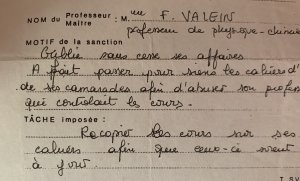 NOM du Professeur : M me F. VALEIN
Maître
professeur de physique-chimie
MOTIF de la sanction
Oublie sans cesse ses affaires
A fait passer pour siens les cahiers d'
de ses camarades afin d'abuser son profes
qui contrôlait les cours.
TÂCHE imposée :
Recopier les cours sur ses
cahiers afin que ceux-ci soient
à jour.
T.SV